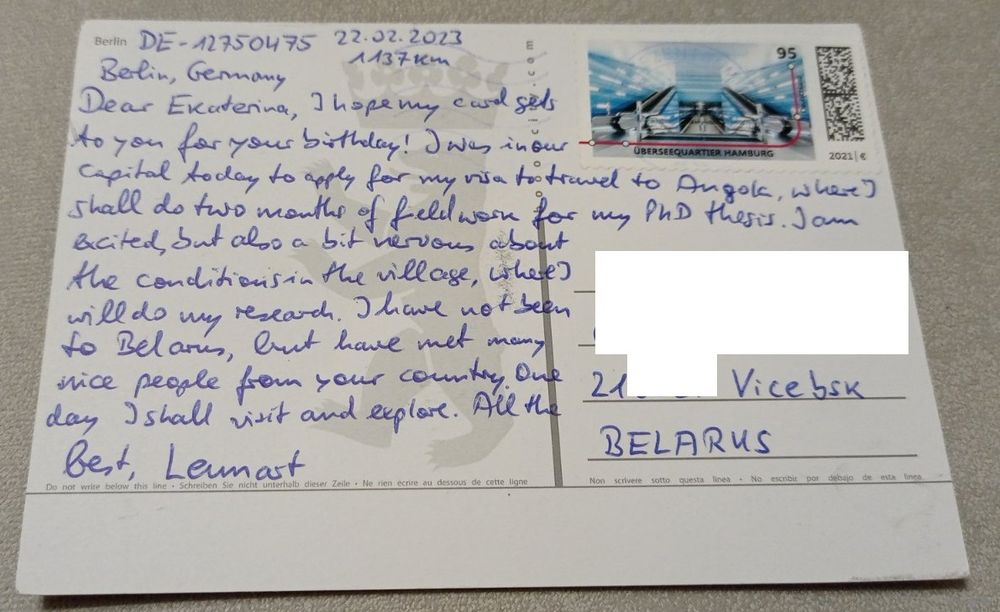 Berlin DE-12750475 22.02.2023
1137km
Berlin, Germany
Dear Ekaterina, I hope my card gets
to you for your birthday! I was in our
capital today to apply for my visa to travel to Angola, where I
shall do two months of fieldwork for my PhD thesis. I am
excited, but also a bit nervous about
the conditions in the village, where I
will do my research. I have not been
to Belarus, but have met many
nice people from your country. One
day I shall visit and explore. All the
best, Lennart
Do not write below this line • Schreiben Sie nicht unterhalb dieser Zeile • Ne rien écrire au dessous de cette ligne
95
ÜBERSEEQUARTIER HAMBURG
2021 | €
21
Vicebsk
BELARUS
Non scrivere sotto questa linea • No escribir por debajo de esta linea